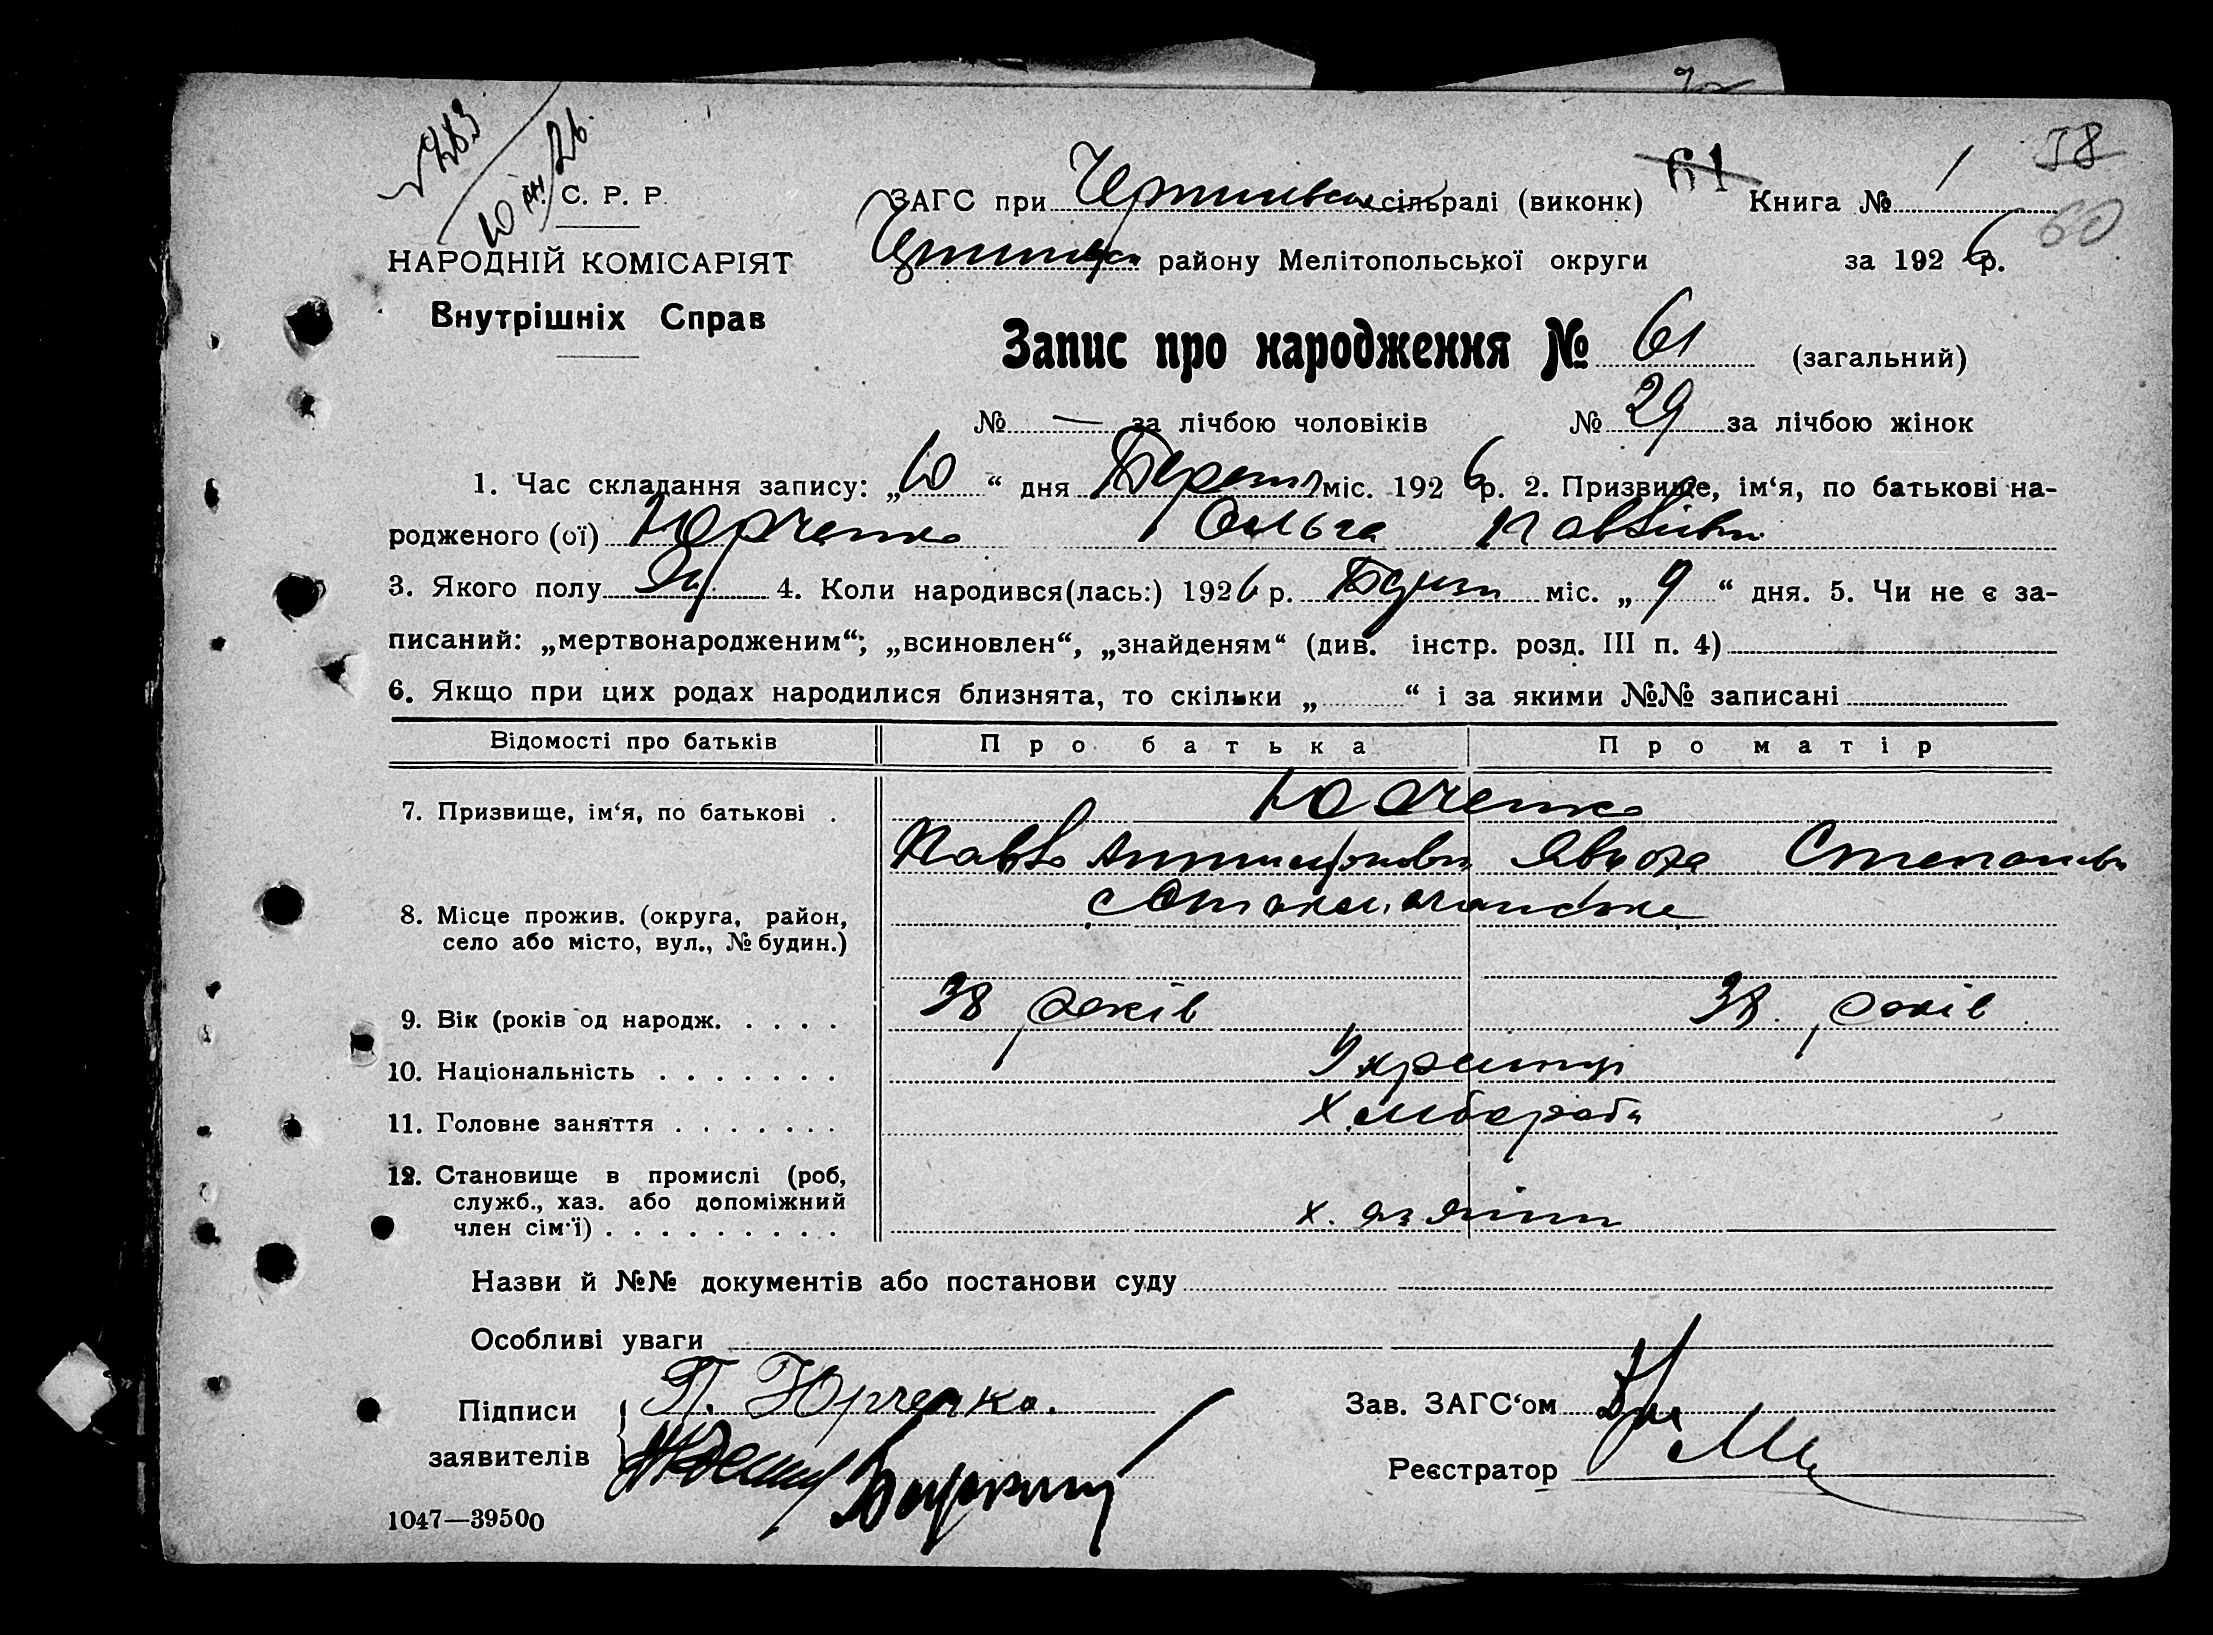 №283
10/III 26.
61
58
60
С. Р. Р.
НАРОДНІЙ КОМІСАРІЯТ
Внутрішніх Справ
ЗАГС при сільраді (виконк) Книга № 1
району Мелітопольської округи за 1926 р.
Запис про народження № 61 (загальний)
№ — за лічбою чоловіків № 29 за лічбою жінок
1. Час складання запису: „10“ дня Березня міс. 1926 р. 2. Призвище, ім‘я, по батькові на-
родженого (ої) Юрченко Ольга Павлівна
3. Якого полу 4. Коли народився(лась:) 1926 р. міс. „9“ дня. 5. Чи не є за-
писаний: „мертвонародженим“; „всиновлен“, „знайденям“ (див. інстр. розд. III п. 4)
6. Якщо при цих родах народилися близнята, то скільки „ “ і за якими №№ записані
Відомості про батьків Про батька Про матір
7. Призвище, ім‘я, по батькові . Юрченко
Павло Степанівн
8. Місце прожив. (округа, район,
село або місто, вул., № будин.)
9. Вік (років од народж. . . . . 38 років 38. років
10. Національність . . . . . . . Українці
11. Головне заняття . . . . . . . Хлібороби
12. Становище в промислі (роб,
служб., хаз. або допоміжний
член сім‘ї) . . . . . . . . . хазяїни
Назви й №№ документів або постанови суду
Особливі уваги
Підписи П. Юрченко. Зав. ЗАГС‘ом
заявителів Реєстратор
1047—39500